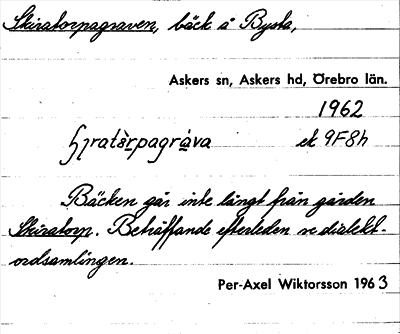 Skiratorpagraven, bäck å Bysta,
Askers sn, Askers hd, Örebro län.
1962
ʃiratèrpagráva ek 9F8h
Bäcken går inte långt från gården
Skiratorp. Beträffande efterleden se dialekt-
ordsamlingen.
Per-Axel Wiktorsson 1963